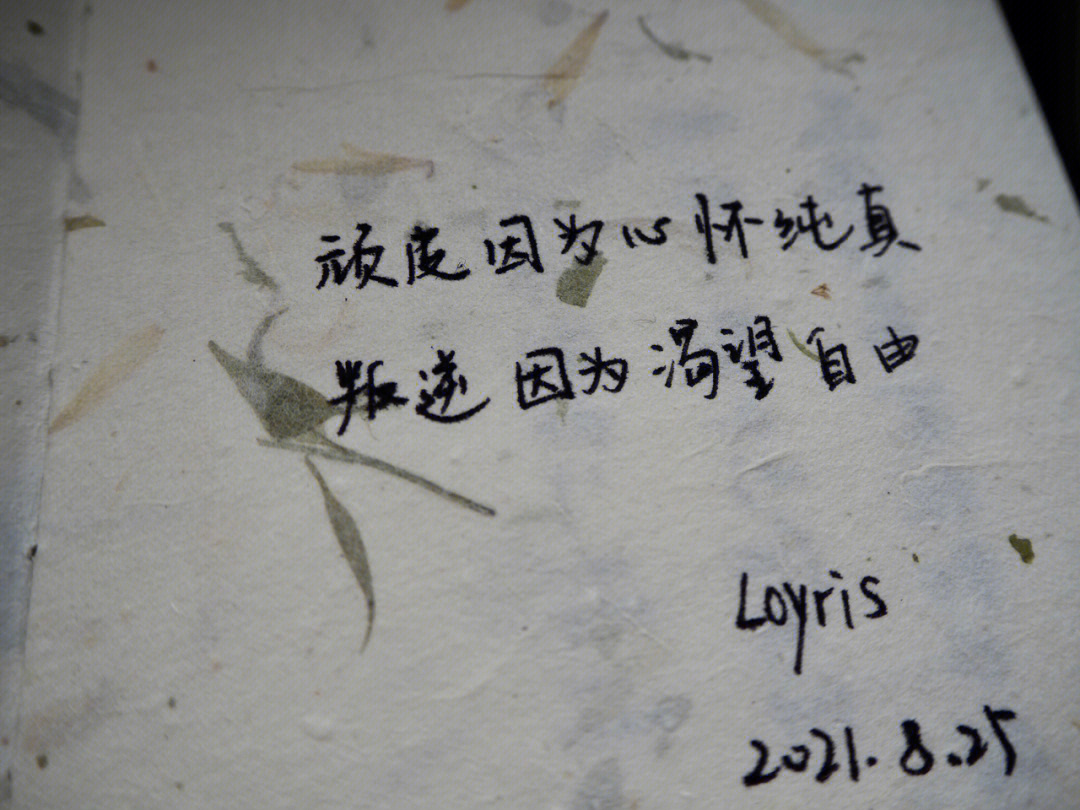 顽皮因为心怀纯真
叛逆因为渴望自由
Loyris
2021.8.25